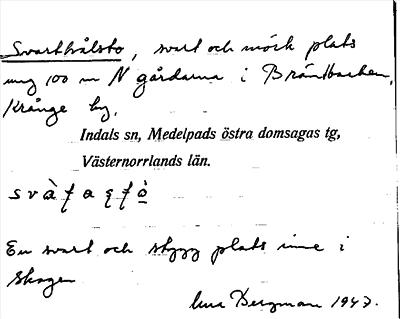 Svarthålsto, svart och mörk plats
ung 100 m N gårdarna i Bräntbacken,
Krånge by.
Indals sn, Medelpads östra domsagas tg,
Västernorrlands län.
En svart och stygg plats inne i
skogen
Bergman 1947.